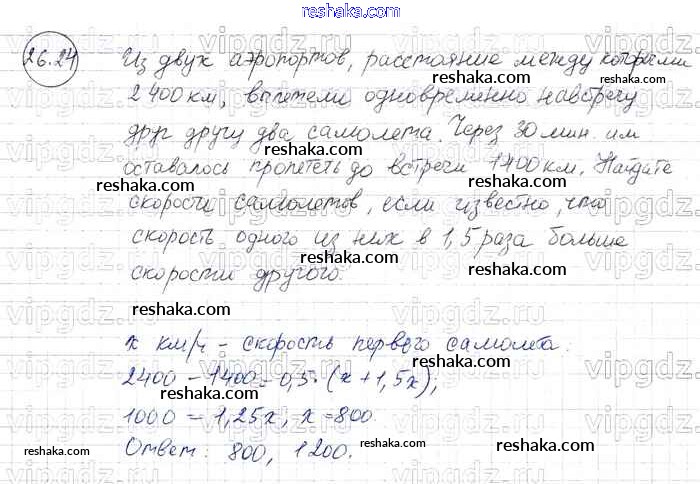 reshaka.com
26.24
Из двух аэропортов, расстояние между которыми
reshaka.com
2400км, вылетели одновременно навстречу
reshaka.com
друг другу два самолета. Через 30 мин им
reshaka.com
оставалось пролететь до встречи 1400км. Найдите
reshaka.com
скорости самолетов, если известно, что
reshaka.com
скорость одного из них в 1,5 раза больше
reshaka.com
скорости другого.
reshaka.com
x км/ч - скорость первого самолета.
reshaka.com
2400 - 1400 = 0,5·(x+1,5x);
reshaka.com
1000 = 1,25x, x = 800.
reshaka.com
Ответ: 800, 1200.
reshaka.com
vipgdz.ru